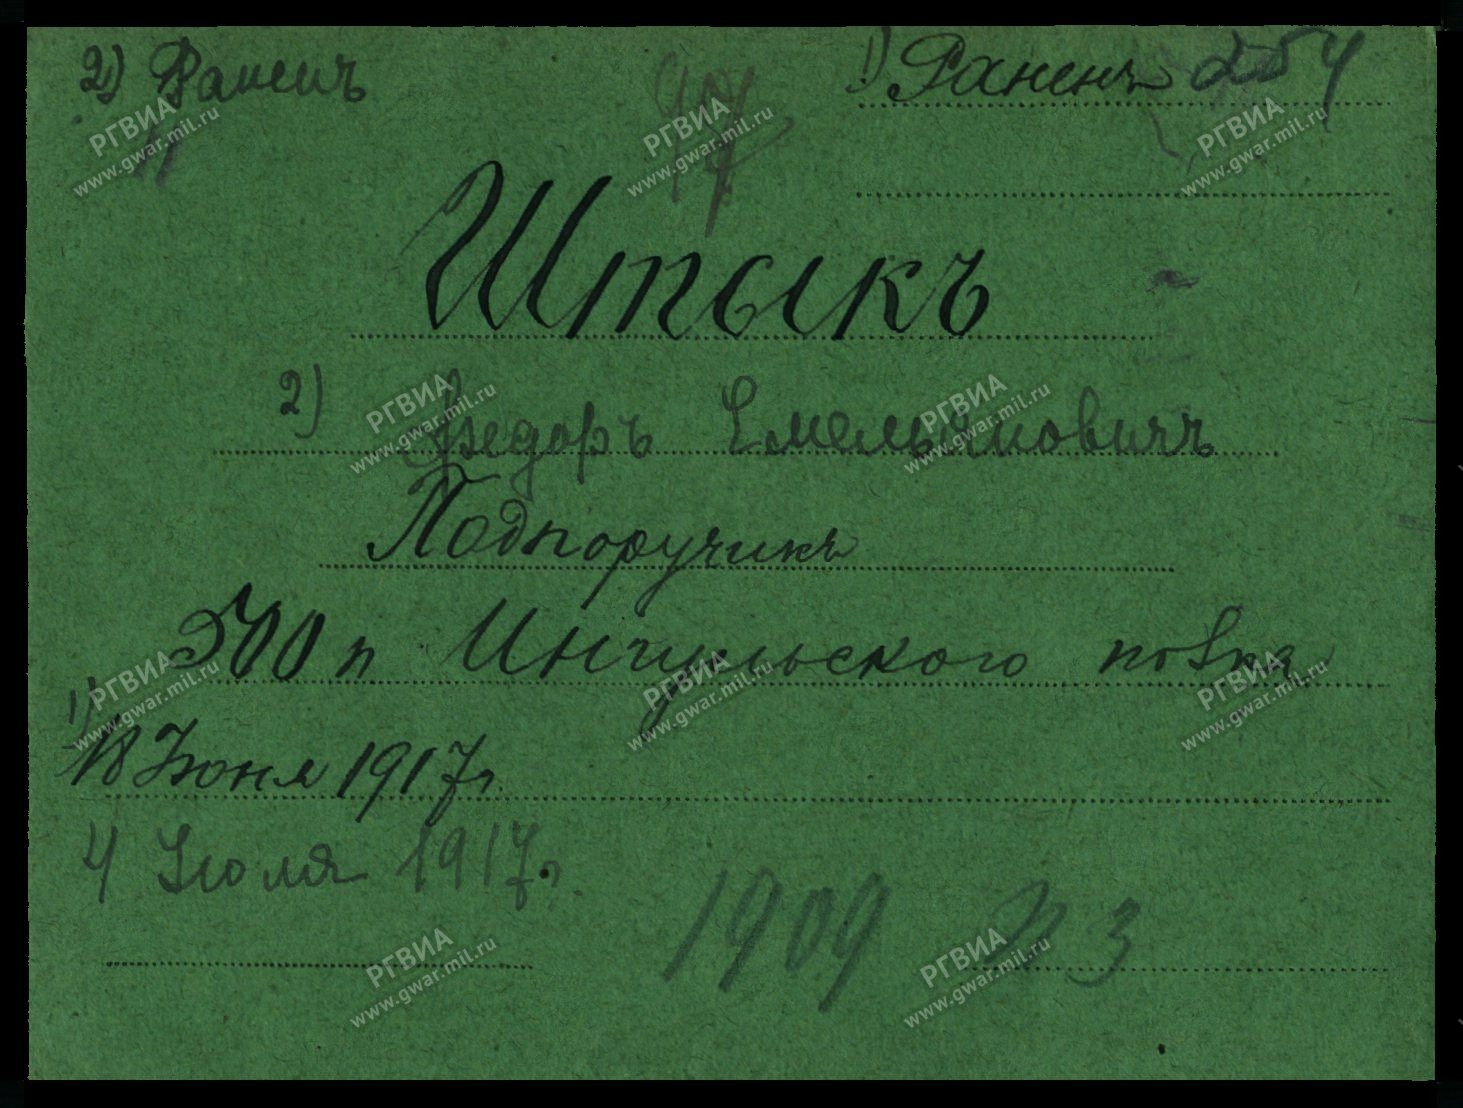 2) Раненъ
1) Раненъ 254
Штыкъ
2) Федоръ Емельяновичъ
Подпоручикъ
500 п. Ингульского полка
1) 18 Июня 1917 г.
4 Июля 1917 г.
1909 3
РГВИА
www.gwar.mil.ru